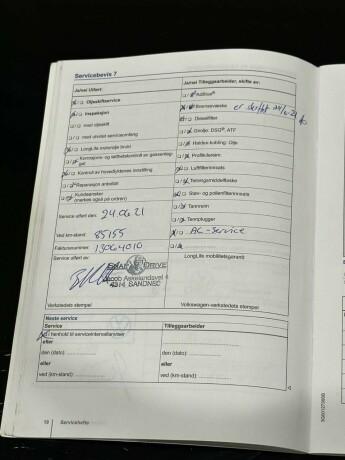 Servicebevis 7
Ja/nei Utført:
Oljeskiftservice
Inspeksjon
med oljeskift
med utvidet serviceomfang
LongLife motorolje brukt
Kontroll av hovedlyktenes innstilling
Reparasjon anbefalt
Kundeønsker
(merkes også på ordren)
Service utført den: 24.06.21
Ved km-stand: 85155
Fakturanummer: 13064010
Service utført av:
DRIVE
Jacob Askelandsvei
4314 SANDNES
Verkstedets stempel
Ja/nei Tilleggsarbeider, skifte av:
AdBlue®
Bremsevæske er skiftet
Dieselfilter
Girolje: DSQ®, ATF
Haldex-kobling: Olje
Luftfilterinnsats
Tetningsmiddelflaske
Støv- og pollenfilterinnsats
Tannreim
Tennplugger
AC-Service
LongLife mobilitetsgaranti
Volkswagen-verkstedets stempel
Neste service
Service
I henhold til serviceintervallanviser
eller
den (dato):
eller
ved (km-stand):
Tilleggsarbeider
den (dato):
eller
ved (km-stand):
18 Servicehefte